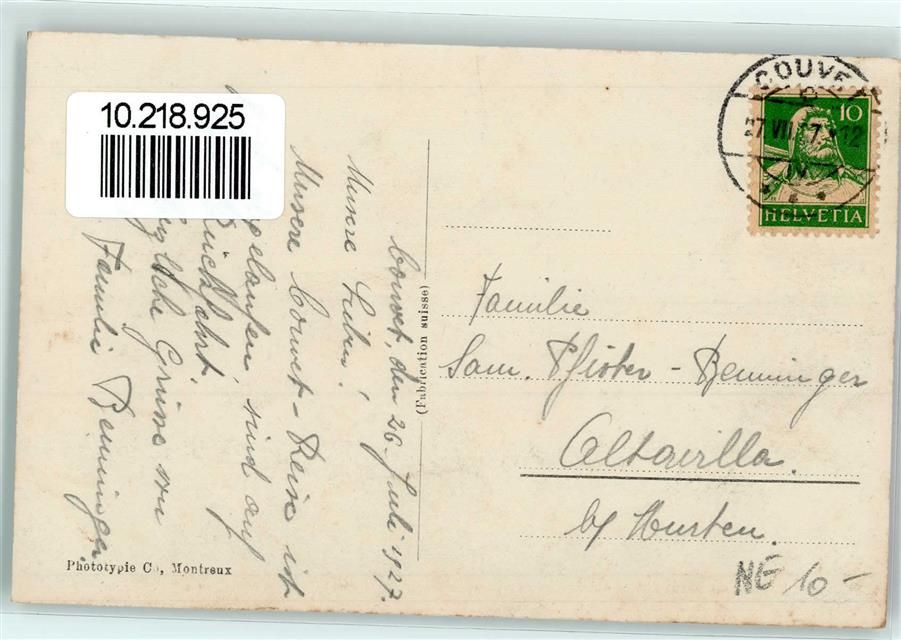 10.218.925
Couvet, den 26. Juli 1927.
Unsere Lieben!
Unsere Couvet-Reise ist
gelaufen, sind auf
Rückfahrt.
Herzliche Grüsse von
Familie Benninger
(Fabrication suisse)
Phototypie Co, Montreux
COUVET
27 VII 27 12
10
HELVETIA
Familie
Sam. Pfister-Benninger
Altavilla.
b/ Murten.
NE 10-